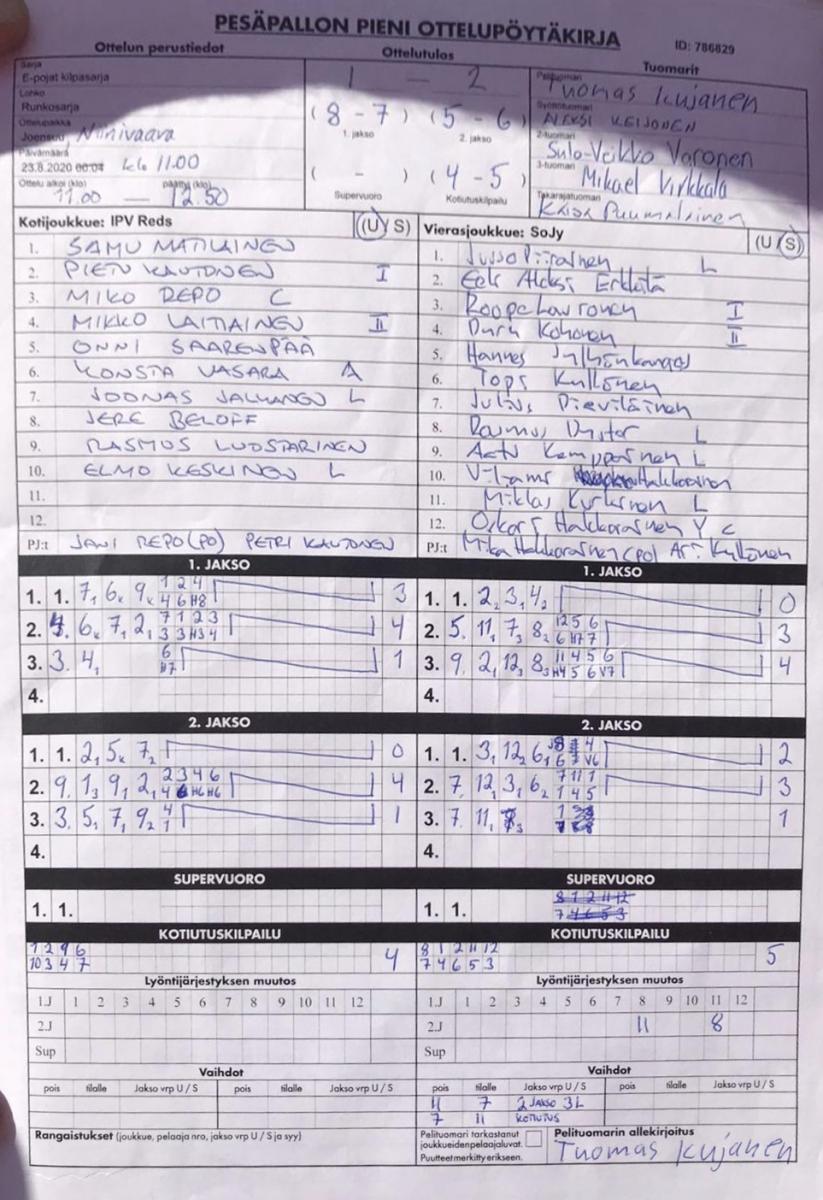 PESÄPALLON PIENI OTTELUPÖYTÄKIRJA
ID: 786829
Ottelun perustiedot Ottelutulos Tuomarit
Sarja
E-pojat kilpasarja
Lohko
Runkosarja
Ottelupaikka
Joensuu, Niinivaara
Päivämäärä
23.8.2020 00:04 klo 11.00
Ottelu alkoi (klo) päättyi (klo)
11.00 — 12.50
1 — 2
(8 - 7) (5 - 6)
1. jakso 2. jakso
( - ) (4 - 5)
Supervuoro Kotiutuskilpailu
Pelituomari
Tuomas Kujanen
Syöttötuomari
ALEKSI KEIJONEN
2-tuomari
Sulo-Veikko Varonen
3-tuomari
Mikael Virkkala
Takarajatuomari
Kaisa Puumalainen
Kotijoukkue: IPV Reds (U S)
1. SAMU MATILAINEN
2. PIETU KAUTONEN I
3. MIKO REPO C
4. MIKKO LAITIAINEN II
5. ONNI SAARENPÄÄ
6. KONSTA VASARA A
7. JOONAS JALKANEN L
8. JERE BELOFF
9. RASMUS LUOSTARINEN
10. ELMO KESKINEN L
11.
12.
PJ:t JANI REPO (PO) PETRI KAUTONEN
Vierasjoukkue: SoJy (U S)
1. Jusso Piirainen L
2. Eek Aleksi Erkkilä
3. Roope Lawronen I
4. Duru Kohonen II
5. Hannes Jylhänkangas
6. Topi Kyllönen
7. Julius Pieviläinen
8. L
9. Aatu Kemppainen L
10. Viljami Hakkarainen
11. Miklas L
12. Oskari Hakkarainen Y C
PJ:t Mika Hakkarainen (PO) Ari Kyllönen
1. JAKSO
1. 1. 7, 6x 9x 1 2 4 3
4 6 H8
2. 4. 6x 7, 2, 7 1 2 3 4
3 3 H3 4
3. 3. 4, 6 1
H7
4.
1. JAKSO
1. 1. 2, 3, 4₂ 0
2. 5. 11, 7₃ 8₂ 12 5 6 3
6 H7 7
3. 9. 2, 12₃ 8₃ 11 4 5 6 4
H4 5 6 V7
4.
2. JAKSO
1. 1. 2, 5x 7₂ 0
2. 9. 1₃ 9, 2, 2 3 4 6 4
4 6 H6 H6
3. 3. 5, 7, 9₂ 4 1
1
4.
2. JAKSO
1. 1. 3, 12₂ 6, 2
2. 7. 12, 3, 6₂ 7 11 1 3
1 4 5
3. 7. 11, 1
4.
SUPERVUORO
1. 1.
SUPERVUORO
8 1 2 11 12
1. 1. 7 4 6 5 3
KOTIUTUSKILPAILU
1 2 9 6 4
10 3 4 7
KOTIUTUSKILPAILU
8 1 2 11 12 5
7 4 6 5 3
Lyöntijärjestyksen muutos
1.J 1 2 3 4 5 6 7 8 9 10 11 12
2.J
Sup
Lyöntijärjestyksen muutos
1.J 1 2 3 4 5 6 7 8 9 10 11 12
2.J 11 8
Sup
Vaihdot
pois tilalle Jakso vrp U / S pois tilalle Jakso vrp U / S
Vaihdot
pois tilalle Jakso vrp U / S pois tilalle Jakso vrp U / S
11 7 2 JAKSO 3L
7 11 KOTIUTUS
Rangaistukset (joukkue, pelaaja nro, jakso vrp U / S ja syy)
Pelituomari tarkastanut
joukkueiden pelaajaluvat.
Puutteet merkitty erikseen.
Pelituomarin allekirjoitus
Tuomas Kujanen